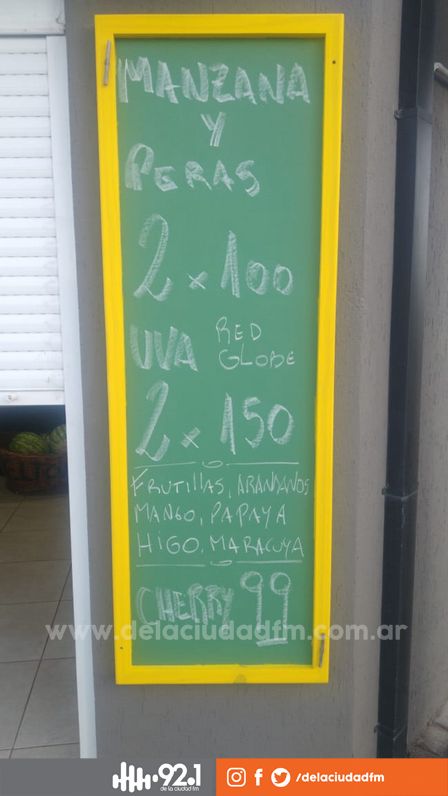 MANZANA
Y
PERAS
2 x 100
UVA RED GLOBE
2 x 150
FRUTILLAS, ARANDANOS
MANGO, PAPAYA
HIGO, MARACUYA
CHERRY 99
www.delaciudadfm.com.ar
92.1
de la ciudad fm
/delaciudadfm